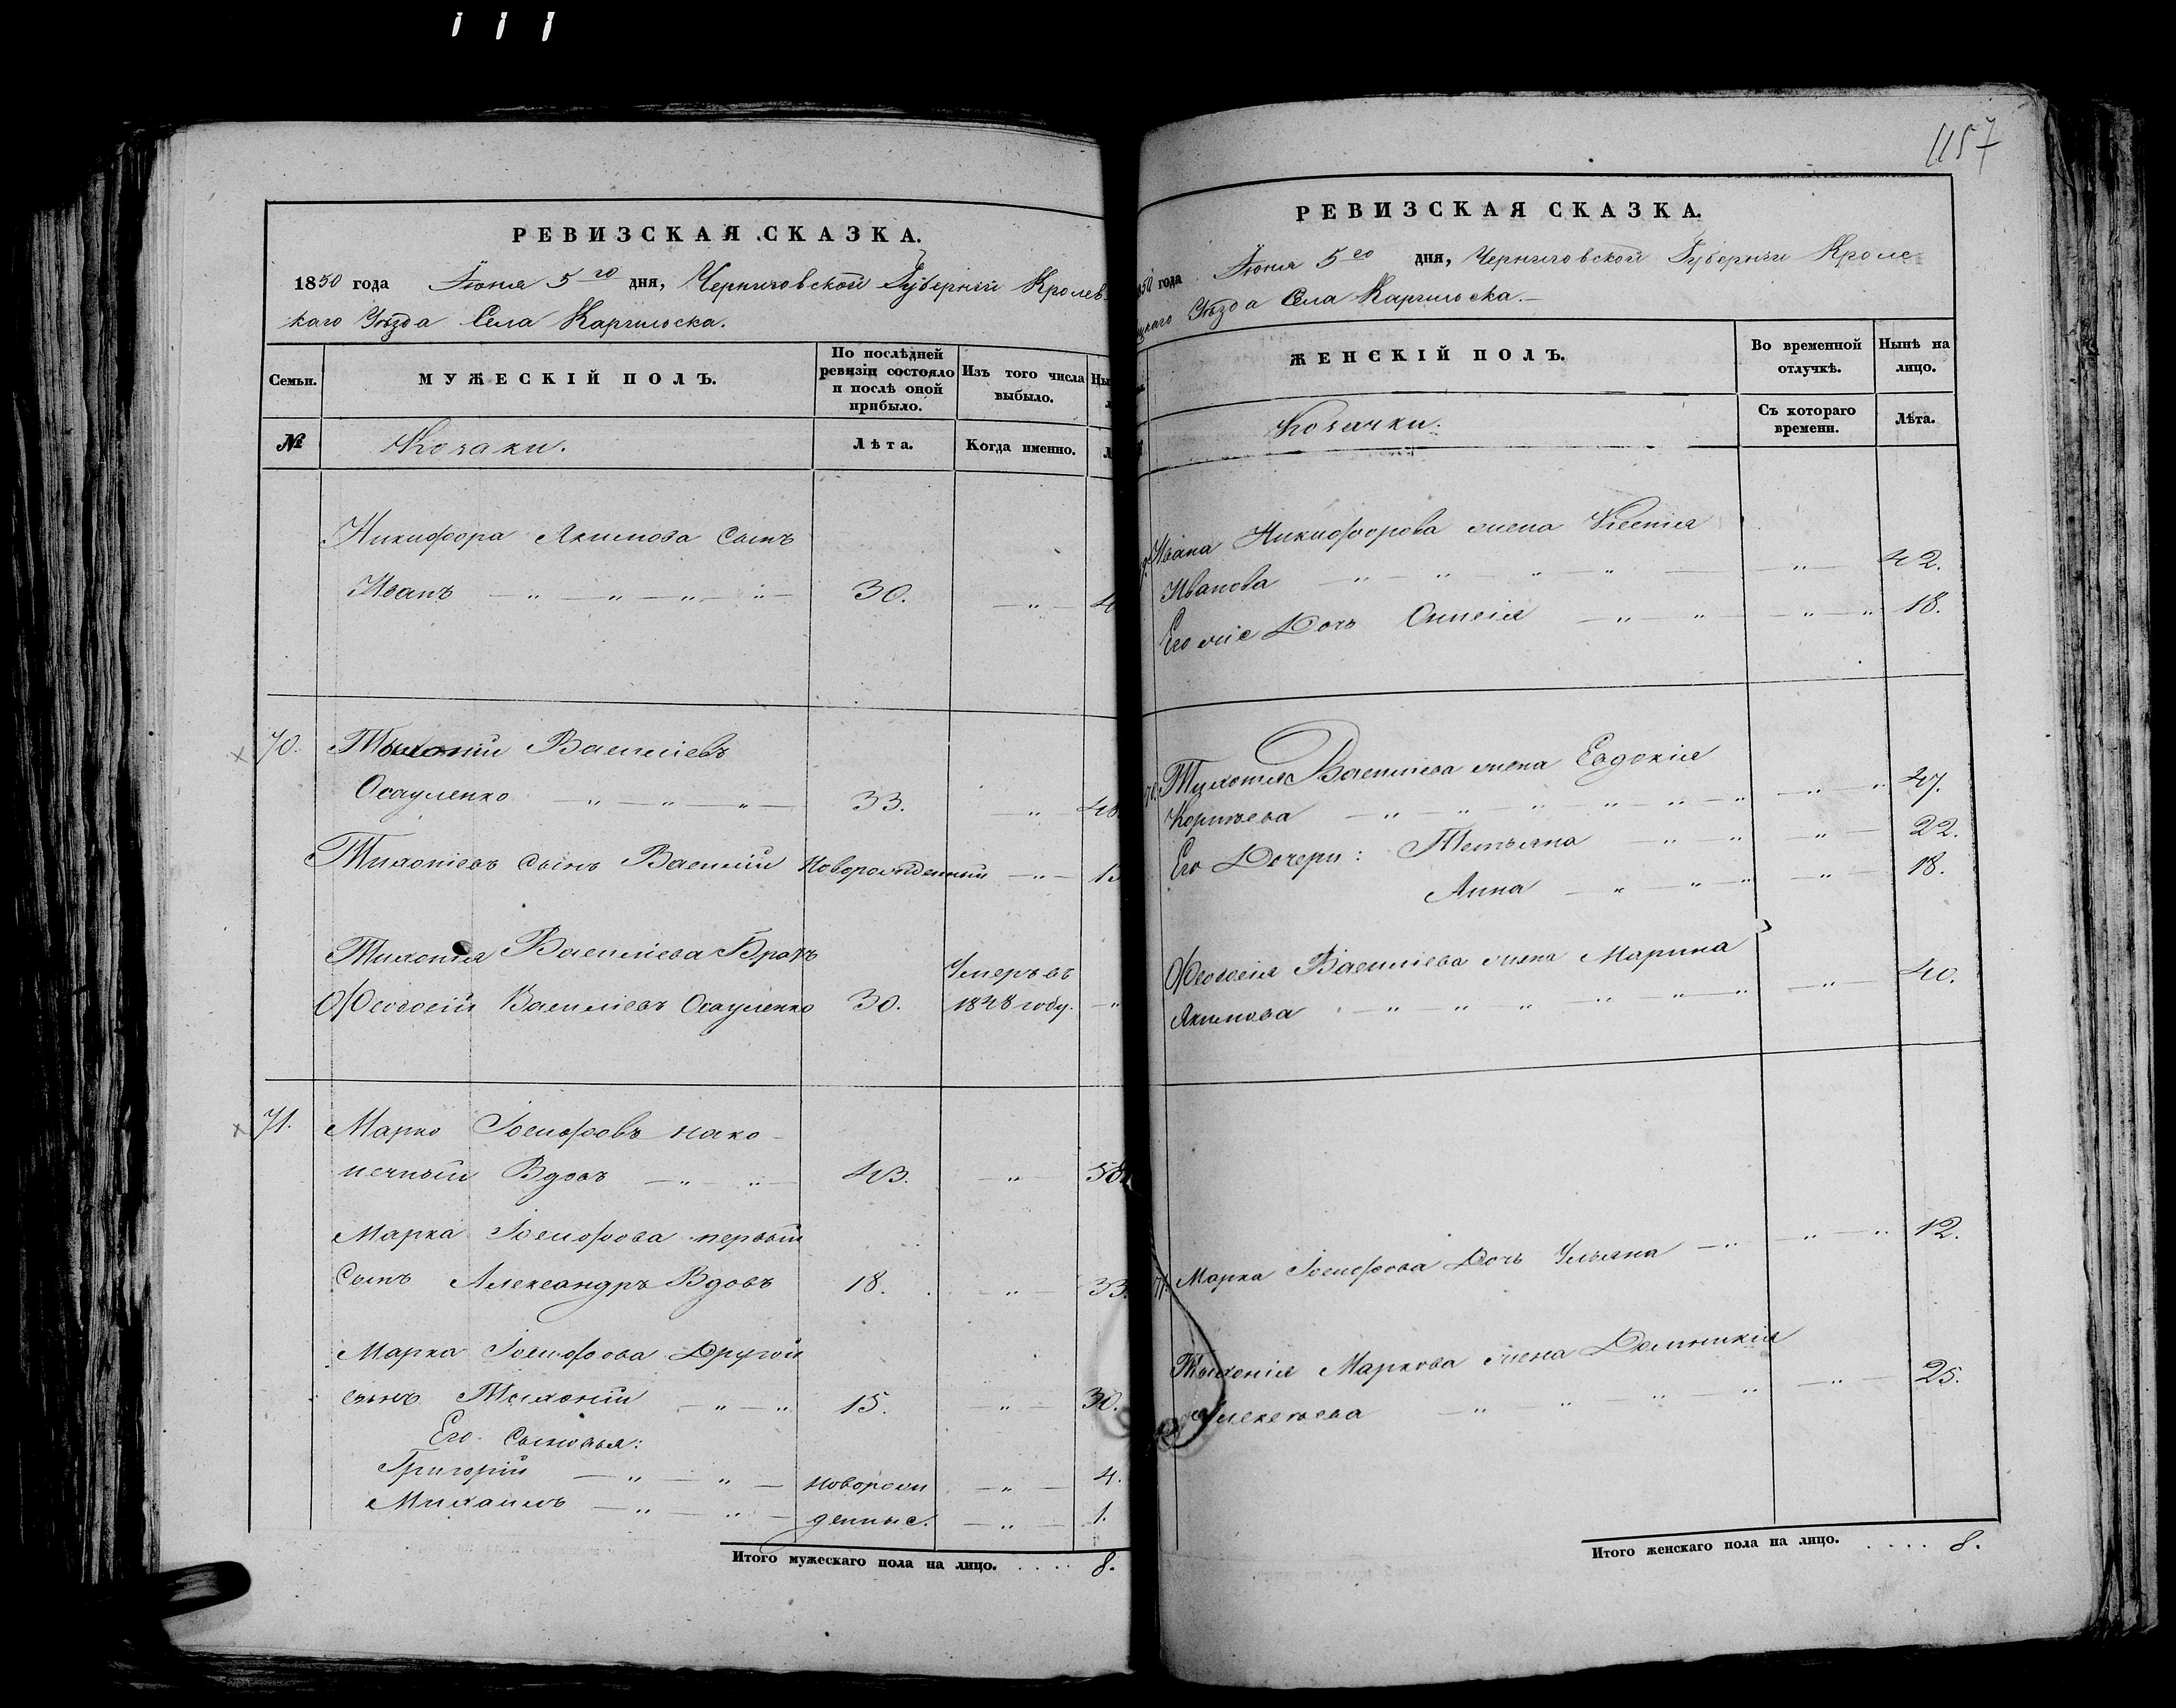 РЕВИЗСКАЯ СКАЗКА.
1850 года Іюня 5го дня, Черниговской Губерніи Кролев
каго Уѣзда Села Каргильска.
Семьи.
МУЖЕСКІЙ ПОЛЪ.
По послѣдней ревизіи состояло и послѣ оной прибыло.
Изъ того числа выбыло.
№
Козаки.
Лѣта.
Когда именно.
Никифора Якимова Сынъ
Иванъ 30.
70. Тихоній Васильевъ
Осауленко 33.
Тихоніевъ Сынъ Василій Новорожденный
Тихонія Васильева Братъ
Ѳеодосій Васильевъ Осауленко 30. Умеръ въ 1848 году.
71. Марко Іосифовъ нако
нечный Вдовъ 43. 58
Марка Іосифова первый
Сынъ Александръ Вдовъ 18. 33.
Марка Іосифова Другой
сынъ Тихоній 15. 30.
Его Сыновья:
Григорій новорож 4.
Михаилъ денные. 1.
Итого мужескаго пола на лицо. . . . . 8.
1157
РЕВИЗСКАЯ СКАЗКА.
1850 года Іюня 5го дня, Черниговской Губерніи Кроле
Уѣзда Села Каргильска.
ЖЕНСКІЙ ПОЛЪ.
Во временной отлучкѣ.
Нынѣ на лицо.
Козачки.
Съ котораго времени.
Лѣта.
Ивана Никифорова жена Ксенія
Иванова 42.
Его же Дочь 18.
70. Тихонія Васильева жена Евдокія
Корнѣева 47.
Его Дочери: Тетьяна 22.
Анна 18.
Ѳеодосія Васильева жена Марина
Якимова 40.
71. Марка Іосифова Дочь Ульяна 12.
Тихонія Маркова жена Домникія
Алексѣева 25.
Итого женскаго пола на лицо. . . . . 8.